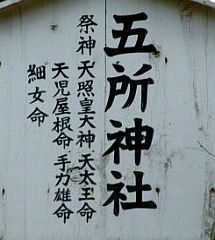 五所神社
祭神 天照皇大神 天太王命
天児屋根命 手力雄命
細女命